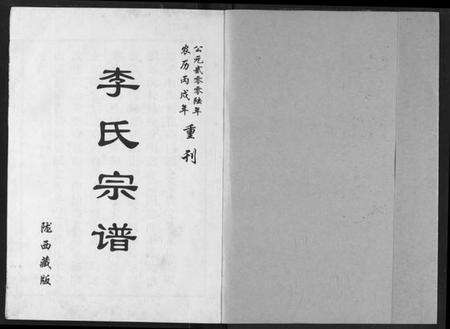 公元贰零零陆年
农历丙戌年 重刊
李氏宗谱
陇西藏版